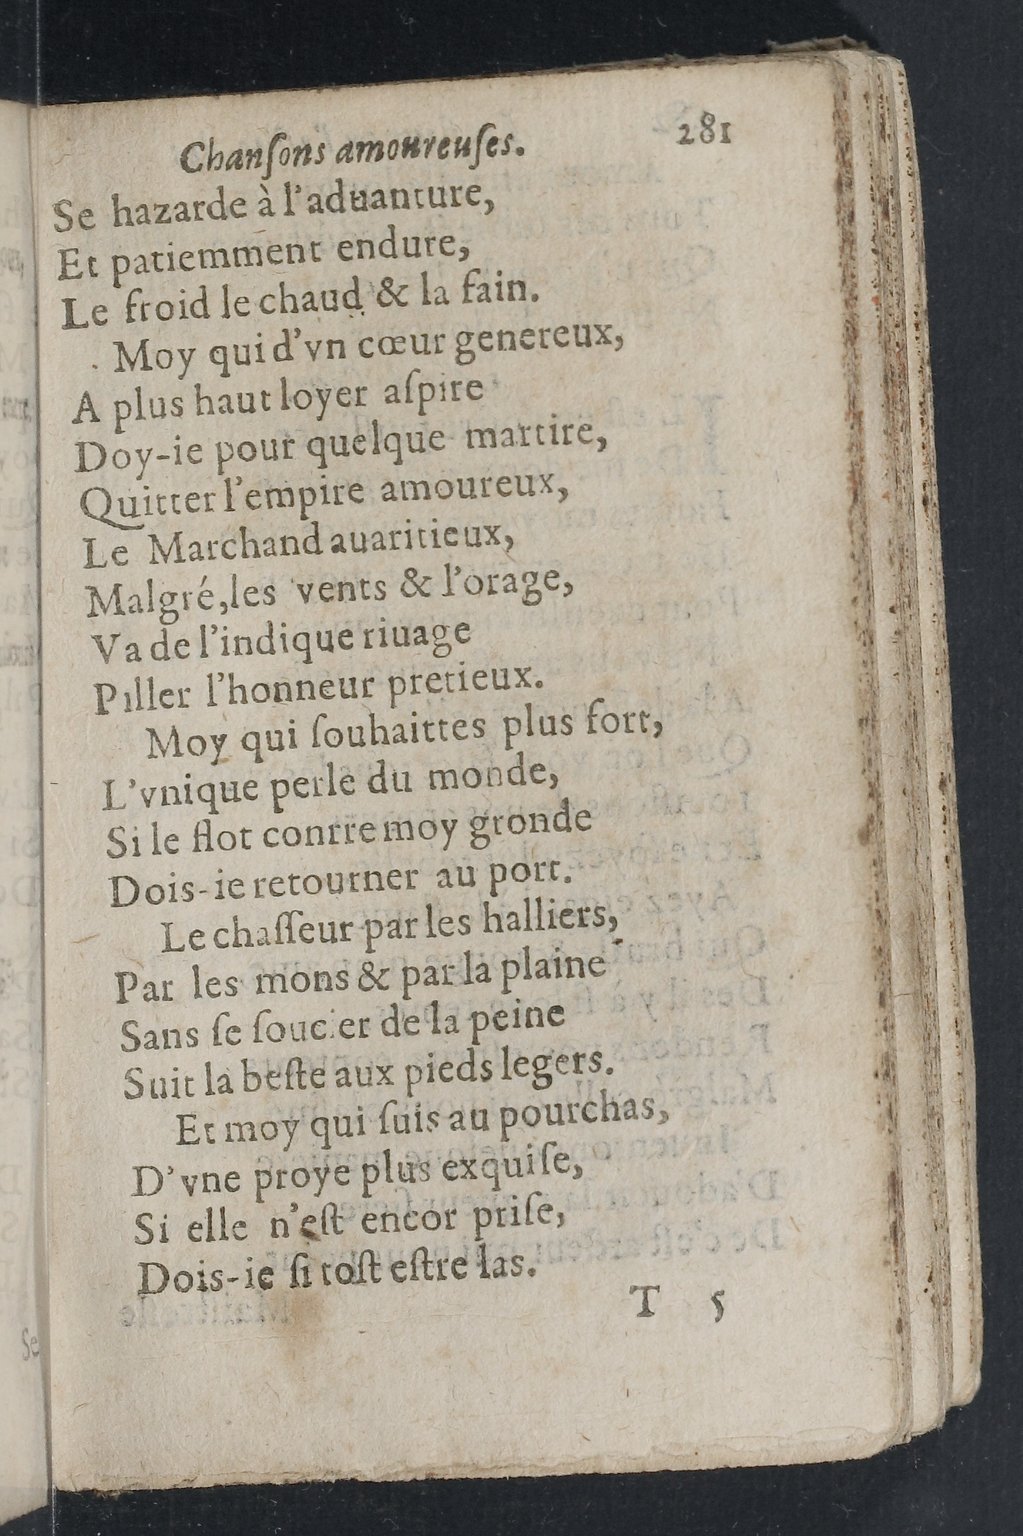 Chanſons amoureuſes. 281
Se hazarde à l'aduanture,
Et patiemment endure,
Le froid le chaud & la fain.
Moy qui d'vn cœur genereux,
A plus haut loyer aſpire
Doy-ie pour quelque martire,
Quitter l'empire amoureux,
Le Marchand auaritieux,
Malgré,les vents & l'orage,
Va de l'indique riuage
Piller l'honneur pretieux.
Moy qui ſouhaittes plus fort,
L'vnique perle du monde,
Si le flot contre moy gronde
Dois-ie retourner au port.
Le chaſſeur par les halliers,
Par les mons & par la plaine
Sans ſe ſoucier de la peine
Suit la beſte aux pieds legers.
Et moy qui ſuis au pourchas,
D'vne proye plus exquiſe,
Si elle n'eſt encor priſe,
Dois-ie ſi toſt eſtre las.
T 5